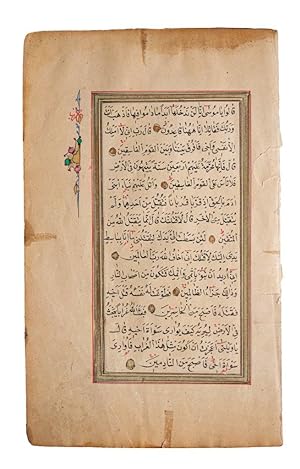 قالوا يا موسى إنا لن ندخلها أبدا ما داموا فيها فاذهب أنت
وربك فقاتلا إنا ههنا قاعدون قال رب إني لا أملك
إلا نفسي وأخي فافرق بيننا وبين القوم الفاسقين
قال فإنها محرمة عليهم أربعين سنة يتيهون في الأرض
فلا تأس على القوم الفاسقين واتل عليهم نبأ ابني
آدم بالحق إذ قربا قربانا فتقبل من أحدهما ولم
يتقبل من الآخر قال لأقتلنك قال إنما يتقبل الله من
المتقين لئن بسطت إلي يدك لتقتلني ما أنا بباسط
يدي إليك لأقتلك إني أخاف الله رب العالمين
إني أريد أن تبوء بإثمي وإثمك فتكون من أصحاب النار
وذلك جزاء الظالمين فطوعت له نفسه قتل أخيه
فقتله فأصبح من الخاسرين فبعث الله غرابا يبحث
في الأرض ليريه كيف يواري سوأة أخيه قال
يا ويلتى أعجزت أن أكون مثل هذا الغراب فأواري
سوأة أخي فأصبح من النادمين